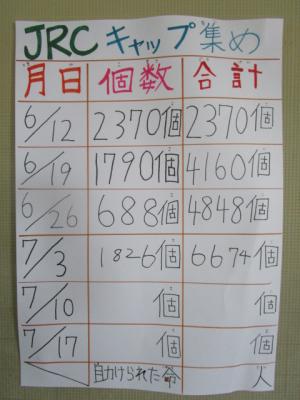 JRC キャップ集め
月日 個数 合計
6/12 2370個 2370個
6/19 1790個 4160個
6/26 688個 4848個
7/3 1826個 6674個
7/10 個 個
7/17 個 個
助けられた命 人